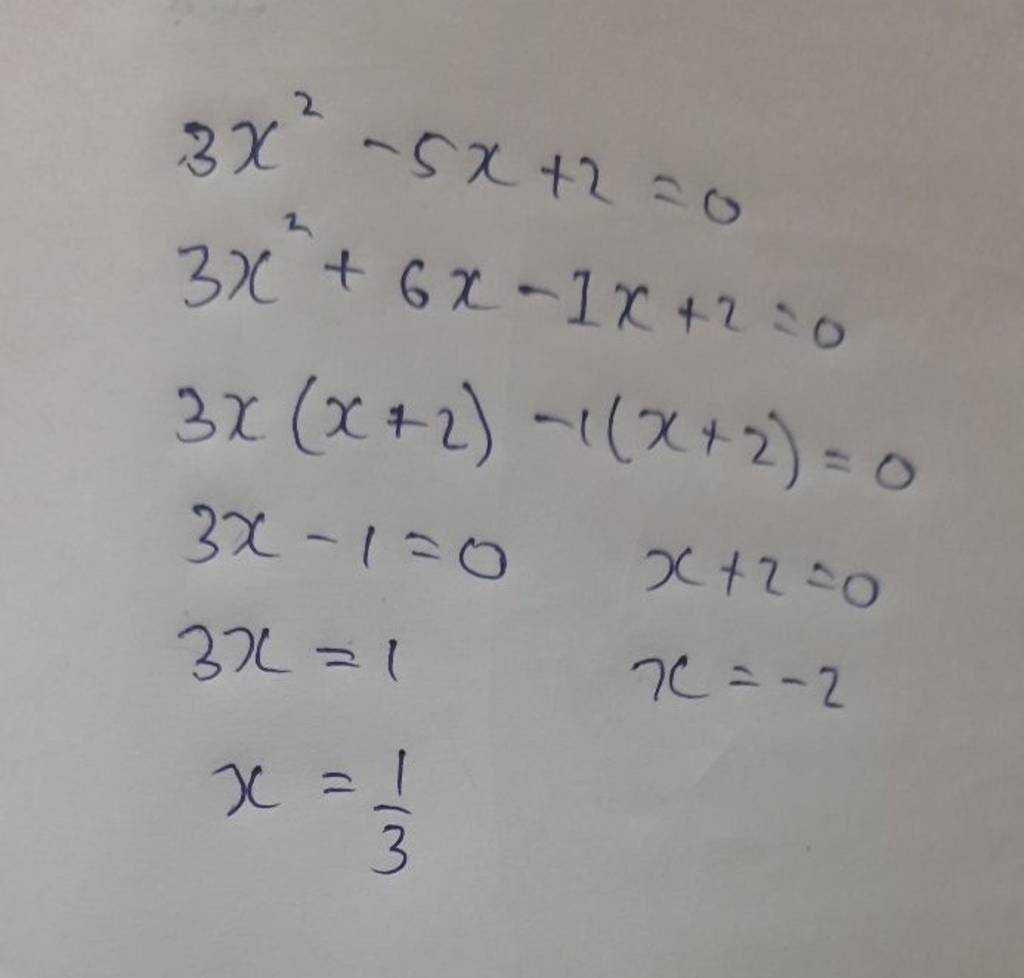 3x² - 5x + 2 = 0
3x² + 6x - 1x + 2 = 0
3x (x + 2) - 1 (x + 2) = 0
3x - 1 = 0    x + 2 = 0
3x = 1    x = -2
x = 1/3